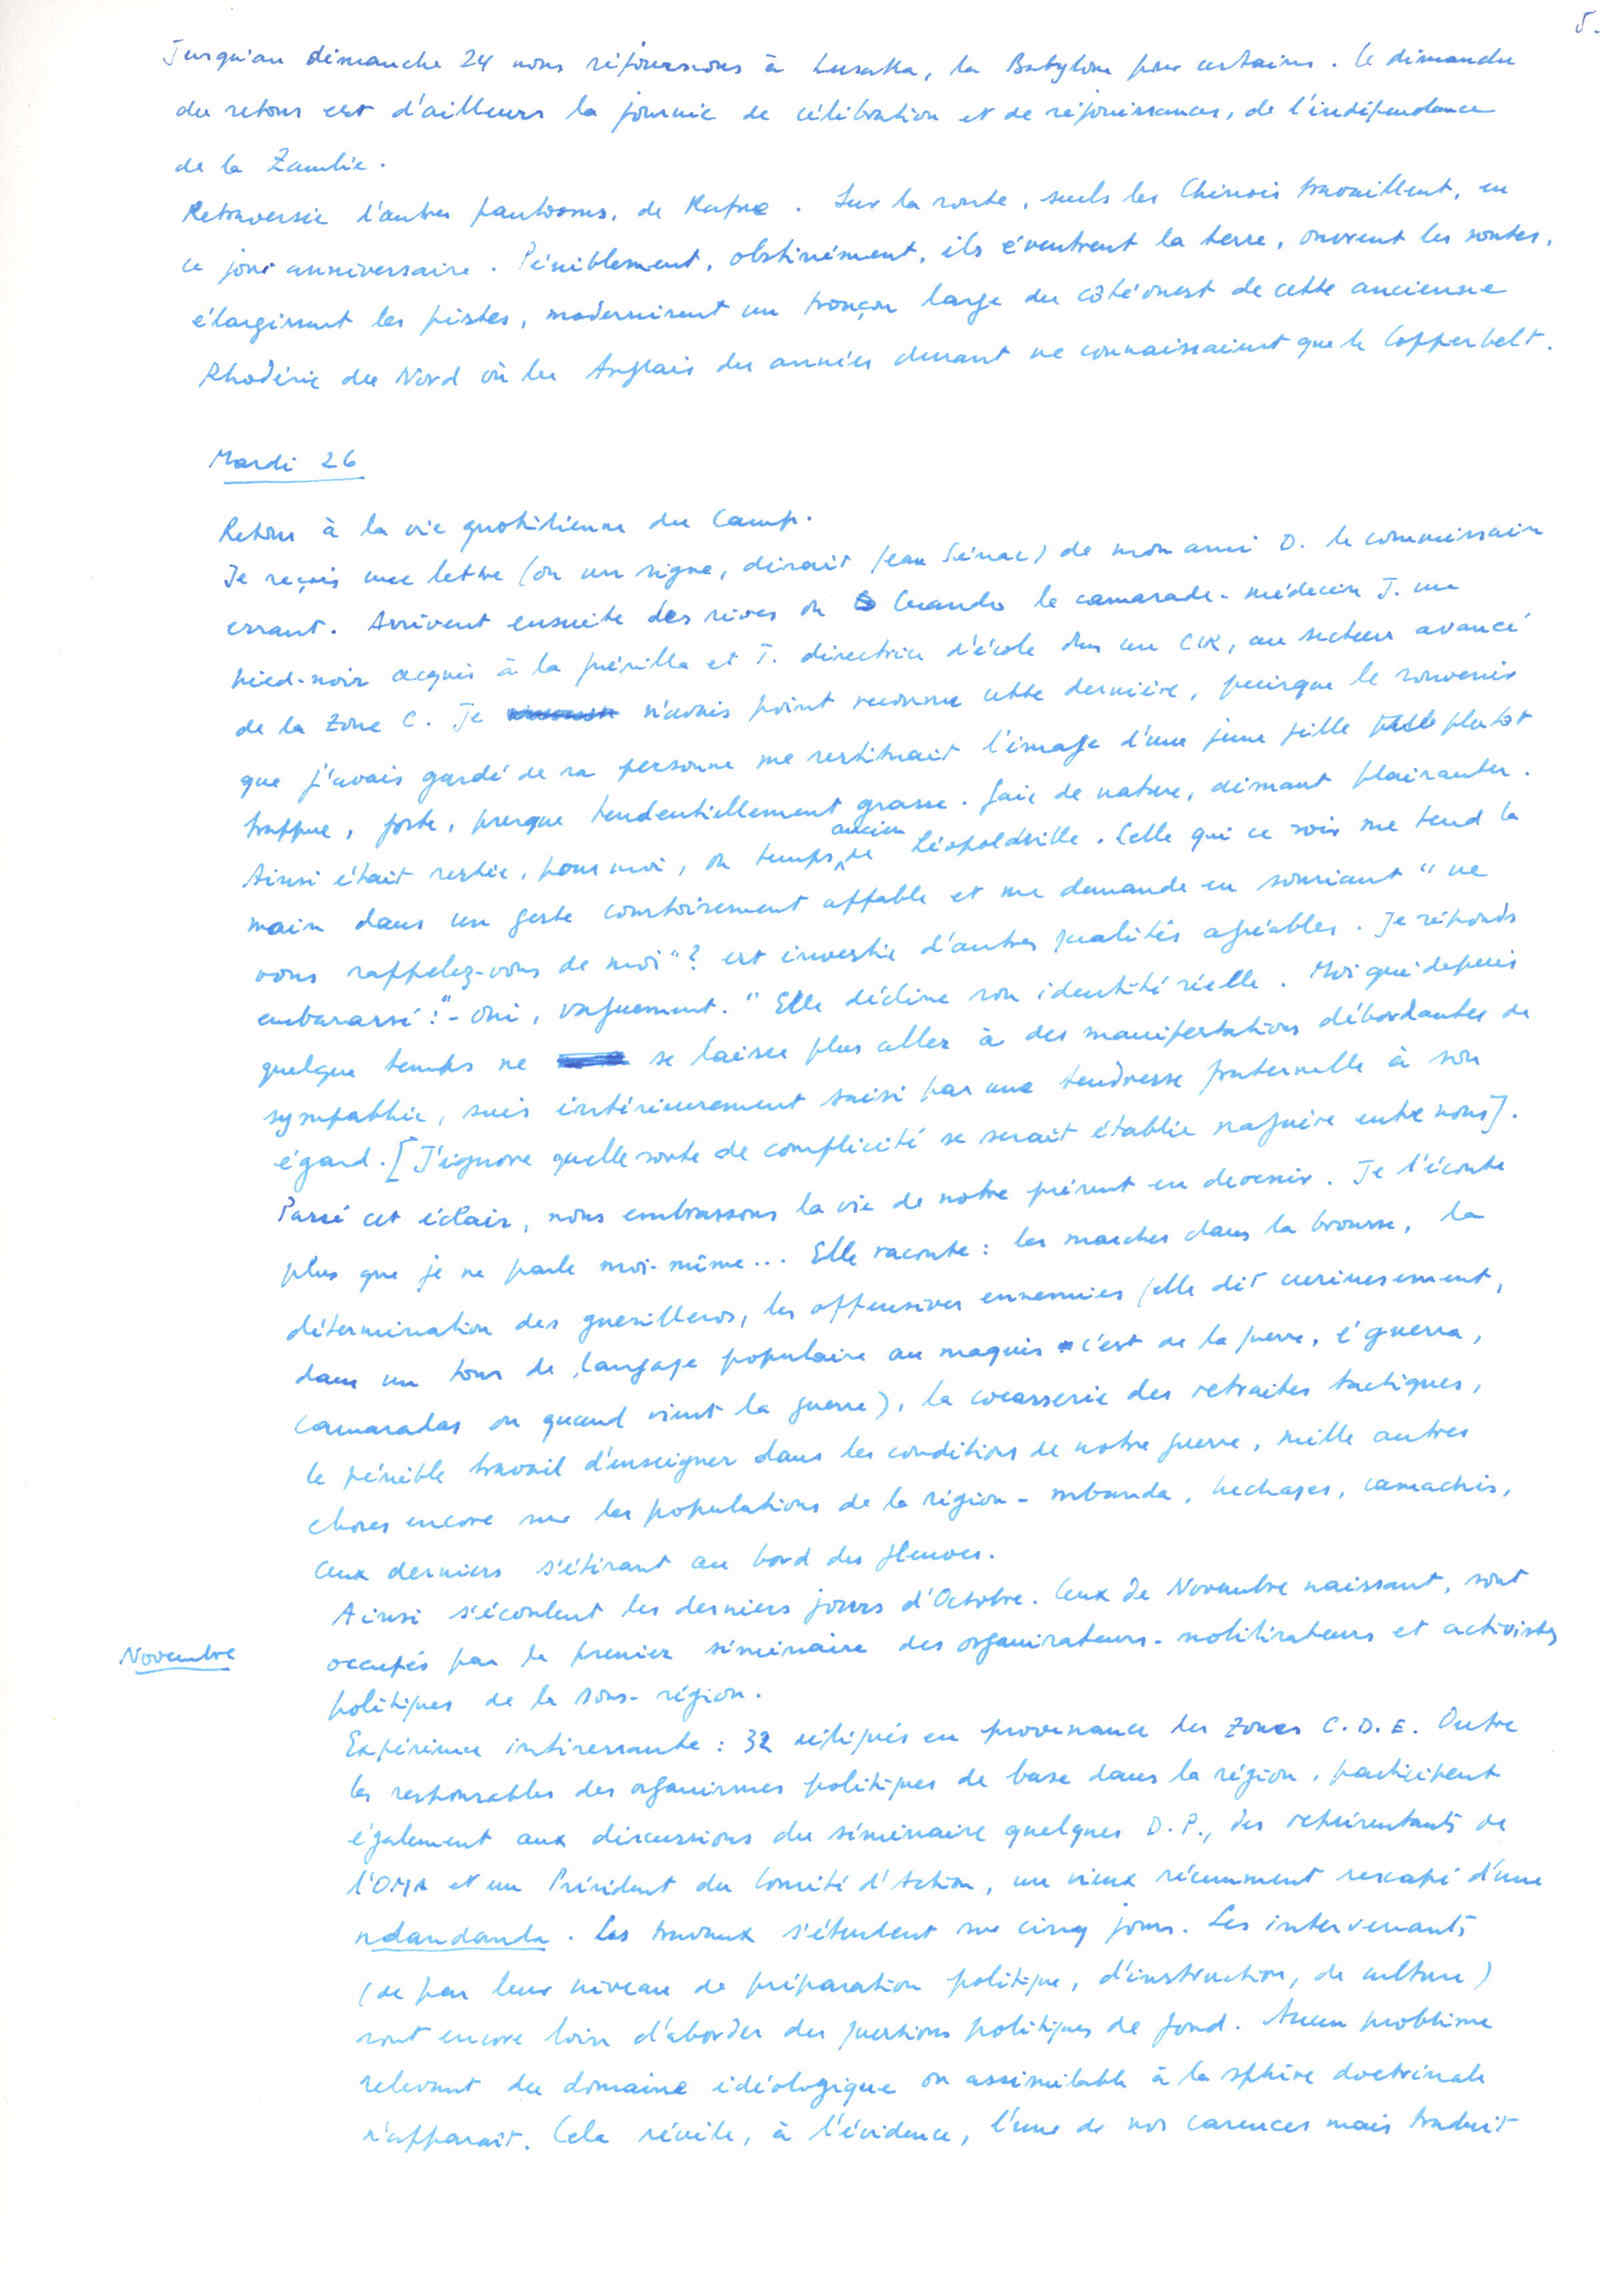 5.
Jusqu'au dimanche 24 nous séjournons à Lusaka, la Babylone pour certains. Le dimanche
du retour est d'ailleurs la journée de célébration et de réjouissances, de l'indépendance
de la Zambie.
Retraversée d'autres fantômes, de Kafue. Sur la route, seuls les Chinois travaillent, en
ce jour anniversaire. Péniblement, obstinément, ils éventrent la terre, ouvrent les routes,
élargissent les pistes, modernisent un tronçon large du côté ouest de cette ancienne
Rhodésie du Nord où les Anglais des années durant ne connaissaient que le Copperbelt.
Mardi 26
Retour à la vie quotidienne du Camp.
Je reçois une lettre (ou un signe, dirait Jean Sénac) de mon ami D. le commissaire
errant. Arrivent ensuite des rives du Cuando le camarade-médecin J. un
pied-noir acquis à la guérilla et T. directrice d'école dans un CIR, au secteur avancé
de la Zone C. Je n'avais point reconnu cette dernière, puisque le souvenir
que j'avais gardé de sa personne me restituait l'image d'une jeune fille plutôt
trappue, forte, presque tendentiellement grasse. Gaie de nature, aimant plaisanter.
Ainsi était restée, pour moi, du temps de ancien Léopoldville. Celle qui ce soir me tend la
main dans un geste courtoisement affable et me demande en souriant "ne
vous rappelez-vous de moi"? est investie d'autres qualités agréables. Je réponds
embarassé: "- Oui, vaguement." Elle décline son identité réelle. Moi qui depuis
quelque temps ne se laisse plus aller à des manifestations débordantes de
sympathie, suis intérieurement saisi par une tendresse fraternelle à son
égard. [J'ignore quelle sorte de complicité se serait établie naguère entre nous].
Passé cet éclair, nous embrassons la vie de notre présent en devenir. Je l'écoute
plus que je ne parle moi-même... Elle raconte: les marches dans la brousse, la
détermination des guerilleros, les offensives ennemies (elle dit curieusement,
dans un tour de langage populaire au maquis c'est de la guerre, é guerra,
camaradas ou quand vient la guerre), la cocasserie des retraites tactiques,
le pénible travail d'enseigner dans les conditions de notre guerre, mille autres
choses encore sur les populations de la région - mbunda, luchazes, camachis,
ceux derniers s'étirant au bord des fleuves.
Ainsi s'écoulent les derniers jours d'Octobre. Ceux de Novembre naissant, sont
Novembre
occupés par le premier séminaire des organisateurs-mobilisateurs et activistes
politiques de la sous-région.
Expérience intéressante: 32 délégués en provenance des Zones C. D. E. Outre
les responsables des organismes politiques de base dans la région, participent
également aux discussions du séminaire quelques D.P., des représentants de
l'OMA et un Président du Comité d'Action, un vieux récemment rescapé d'une
ndandanda. Les travaux s'étendent sur cinq jours. Les intervenants
(de par leur niveau de préparation politique, d'instruction, de culture)
sont encore loin d'aborder des questions politiques de fond. Aucun problème
relevant du domaine idéologique ou assimilable à la sphère doctrinale
n'apparaît. Cela révèle, à l'évidence, l'une de nos carences mais traduit